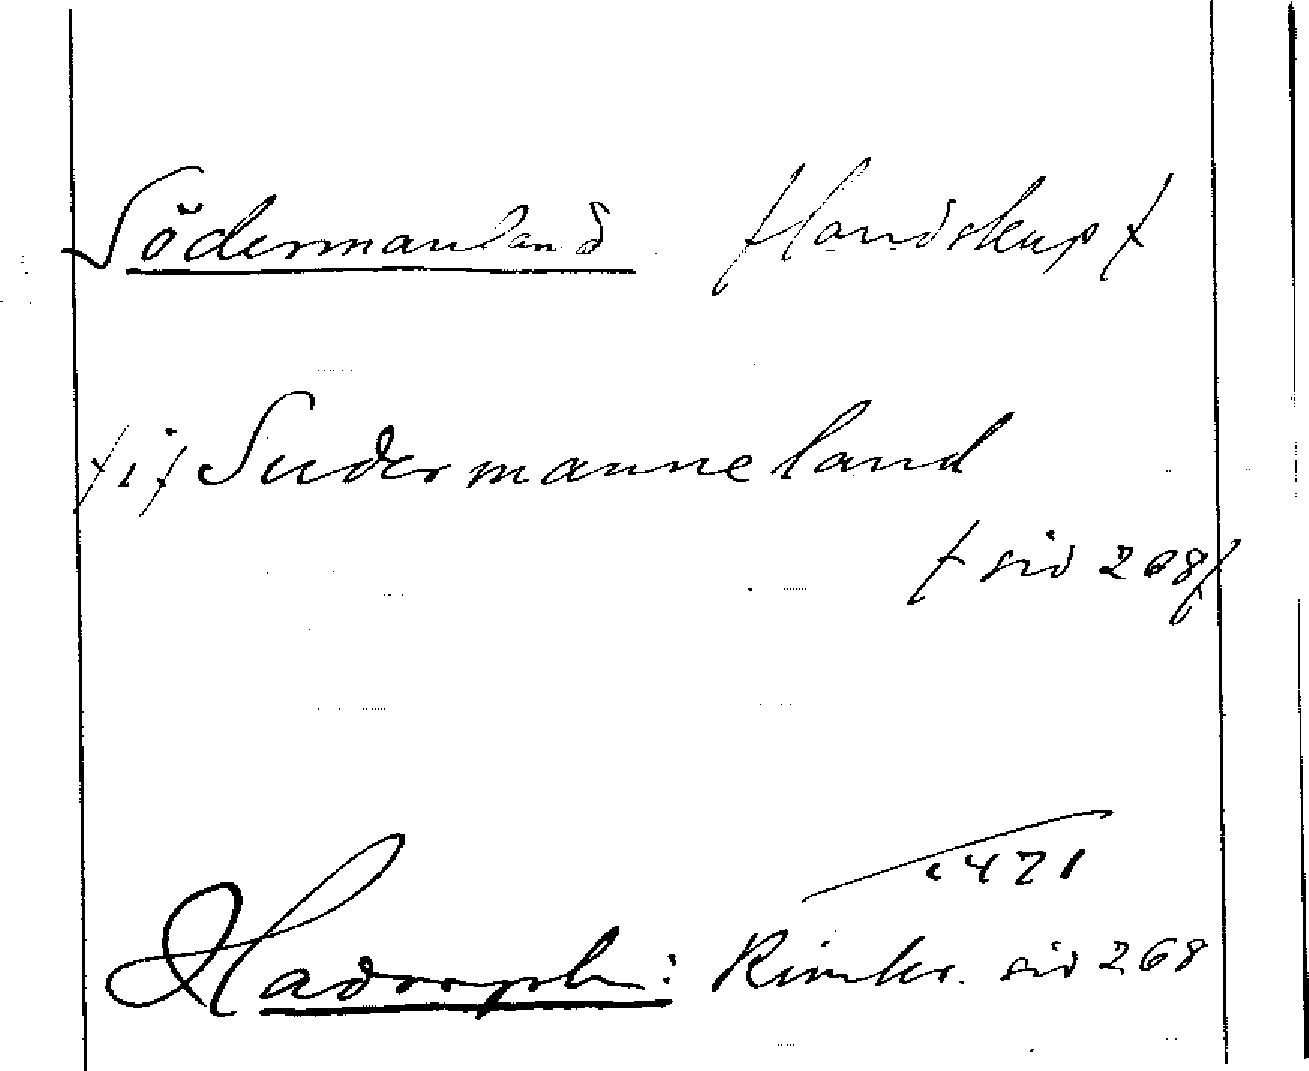 Södermanland /landskap/
/i/ Sudermanneland
/sid 268/
c. 1471
Hadorph: Rimkr. sid 268